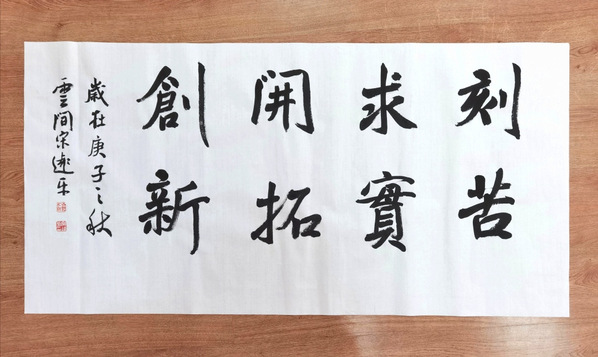 刻苦
求實
開拓
創新
歲在庚子之秋
雲間宋迹乐